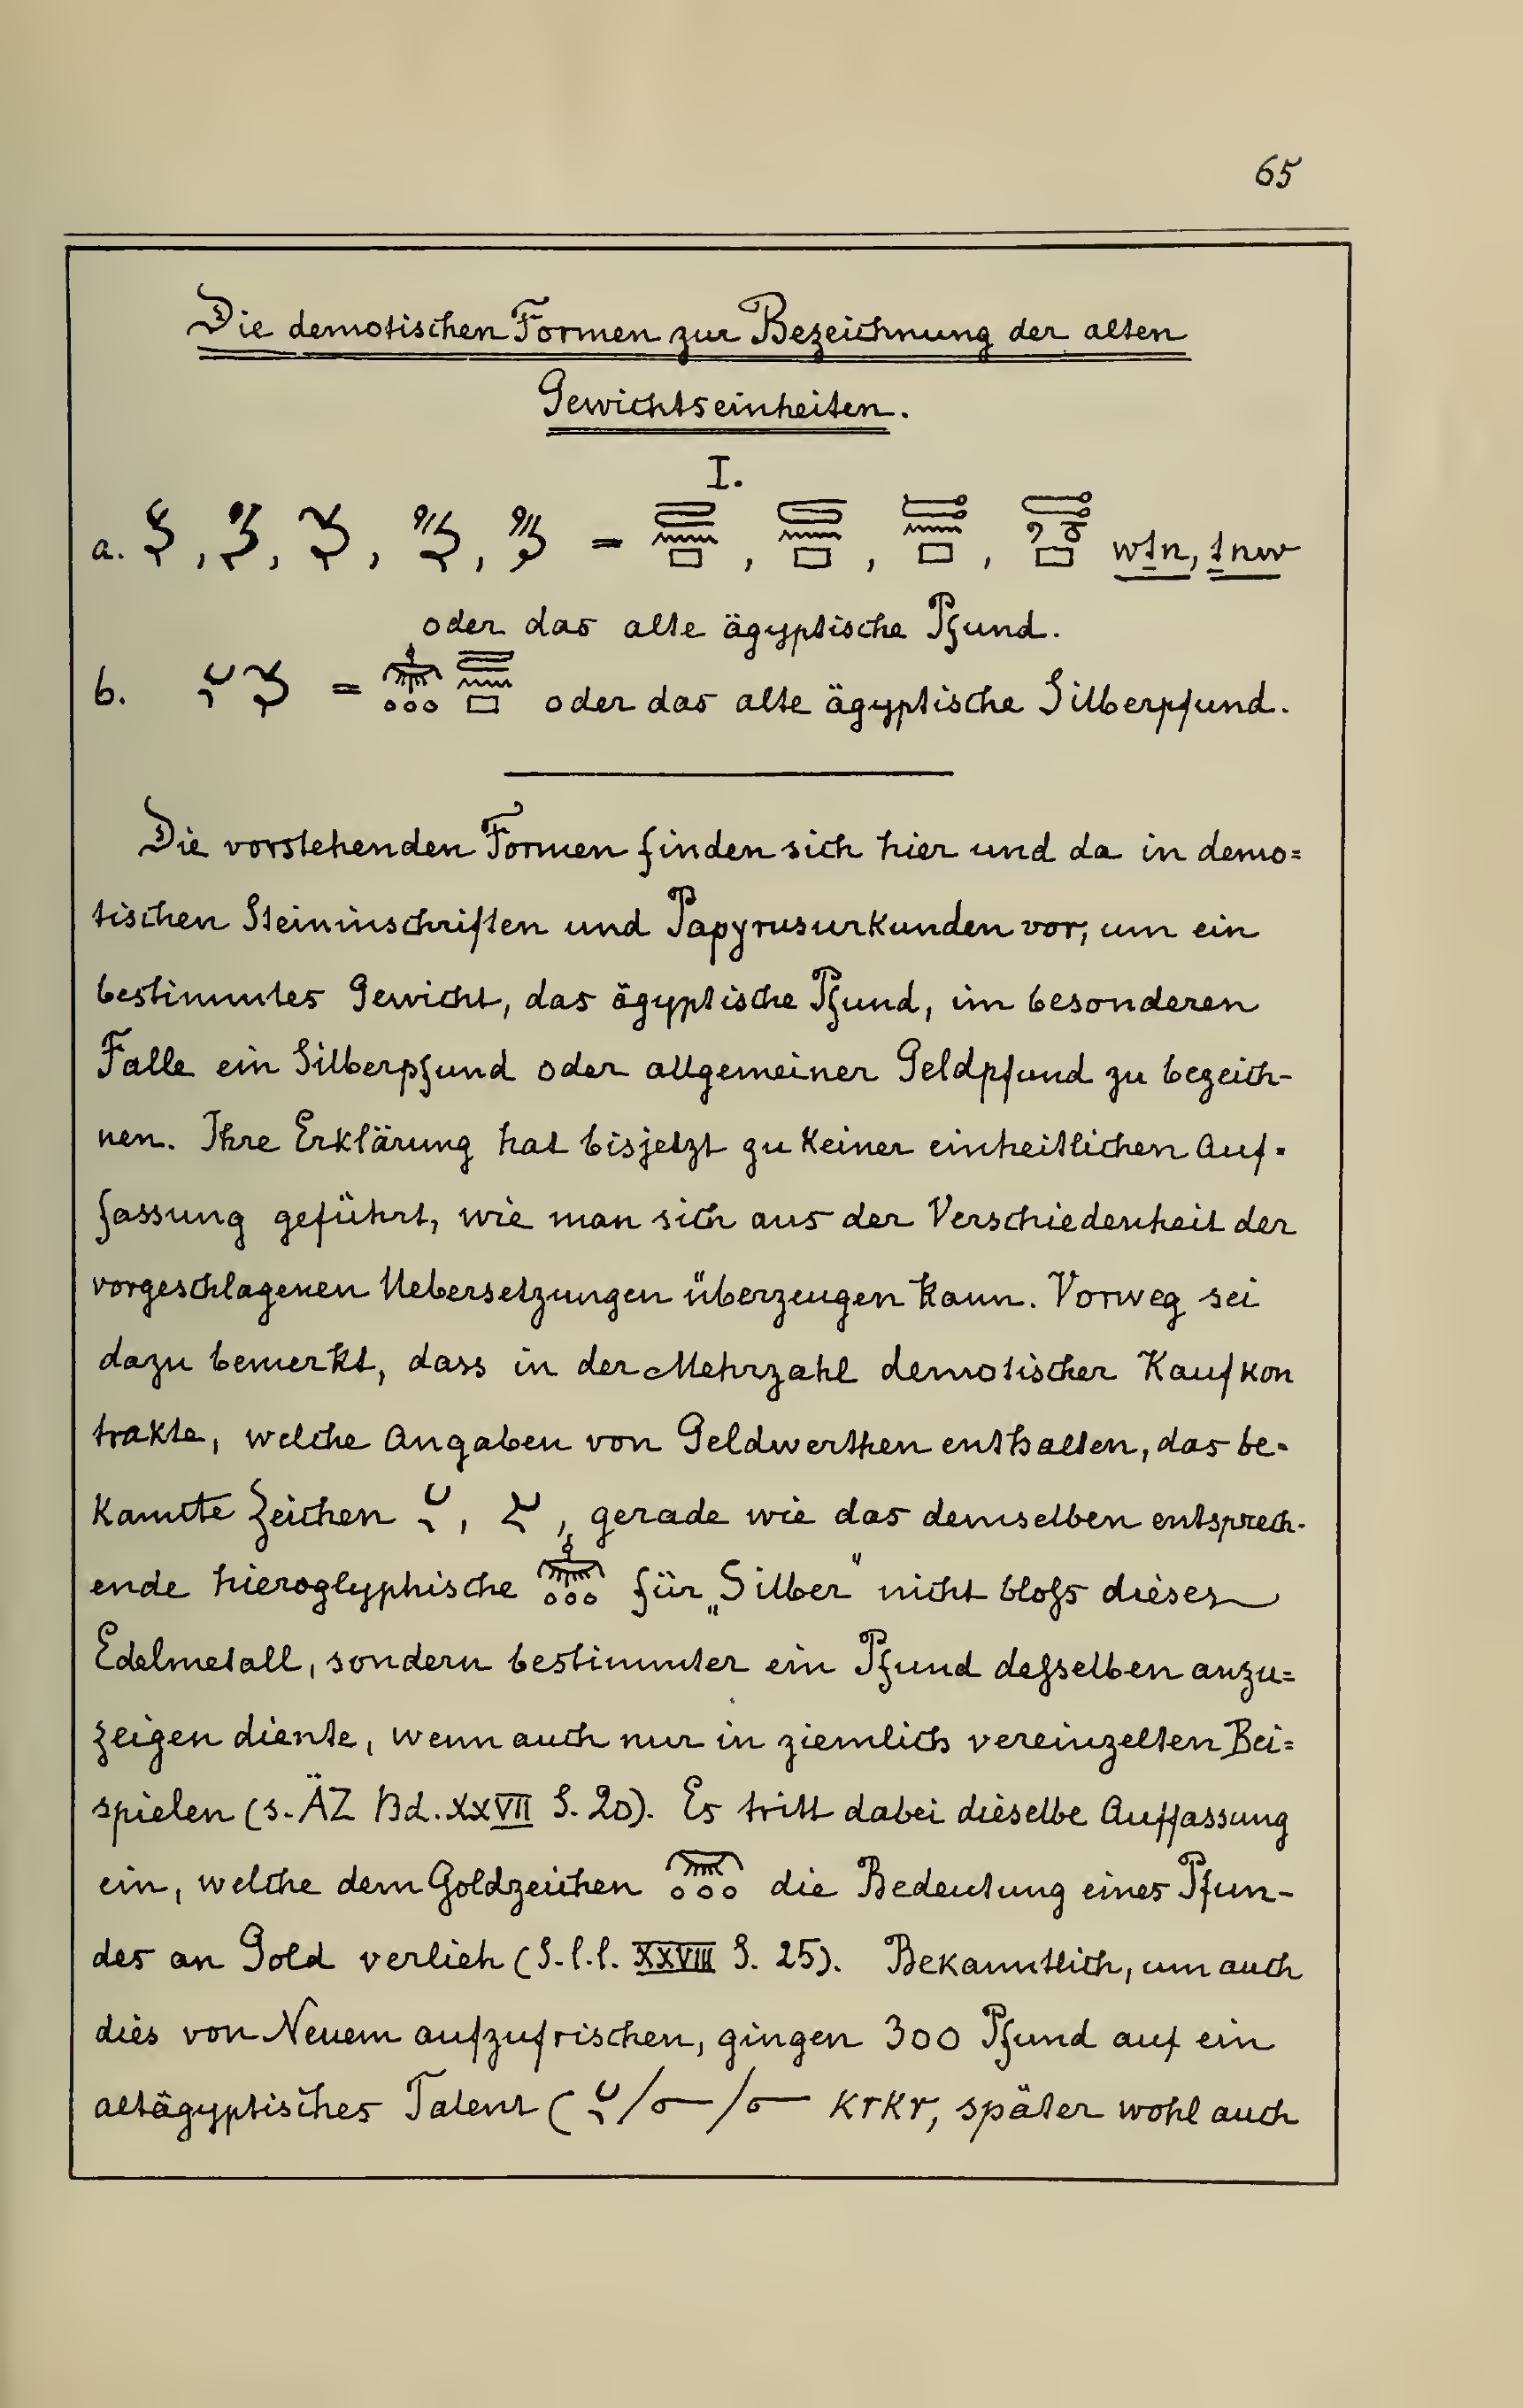 65
Die demotischen Formen zur Bezeichnung der alten
Gewichtseinheiten.
I.
a. , , , , = , , , wtn, tnw
oder das alte ägyptische Pfund.
b. = oder das alte ägyptische Silberpfund.
Die vorstehenden Formen finden sich hier und da in demo=
tischen Steininschriften und Papyrusurkunden vor, um ein
bestimmtes Gewicht, das ägyptische Pfund, im besonderen
Falle ein Silberpfund oder allgemeiner Geldpfund zu bezeich-
nen. Ihre Erklärung hat bisjetzt zu keiner einheitlichen Auf-
fassung geführt, wie man sich aus der Verschiedenheit der
vorgeschlagenen Uebersetzungen überzeugen kann. Vorweg sei
dazu bemerkt, dass in der Mehrzahl demotischer Kaufkon
trakte, welche Angaben von Geldwerthen enthalten, das be-
kannte Zeichen , , gerade wie das demselben entsprech-
ende hieroglyphische für „Silber" nicht bloß dieses
Edelmetall, sondern bestimmter ein Pfund deßselben anzu=
zeigen diente, wenn auch nur in ziemlich vereinzelten Bei=
spielen (s. ÄZ Bd. XXVII S. 20). Es tritt dabei dieselbe Auffassung
ein, welche dem Goldzeichen die Bedeutung eines Pfun-
des an Gold verlieh (S. l. l. XXVIII S. 25). Bekanntlich, um auch
dies von Neuem aufzufrischen, gingen 300 Pfund auf ein
altägyptisches Talent ( krkr, später wohl auch